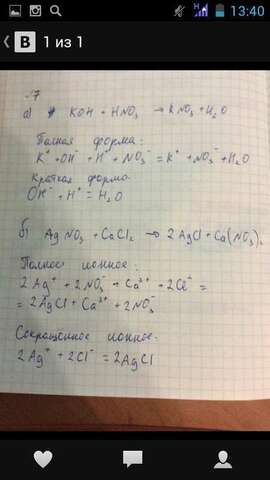 13:40
B 1 из 1
7
а) KOH + HNO₃ → KNO₃ + H₂O
Полная форма:
K⁺ + OH⁻ + H⁺ + NO₃⁻ = K⁺ + NO₃⁻ + H₂O
Краткая форма
OH⁻ + H⁺ = H₂O
б) AgNO₃ + CaCl₂ → 2AgCl + Ca(NO₃)₂
Полное ионное:
2Ag⁺ + 2NO₃⁻ + Ca²⁺ + 2Cl⁻ =
= 2AgCl + Ca²⁺ + 2NO₃⁻
Сокращённое ионное:
2Ag⁺ + 2Cl⁻ = 2AgCl